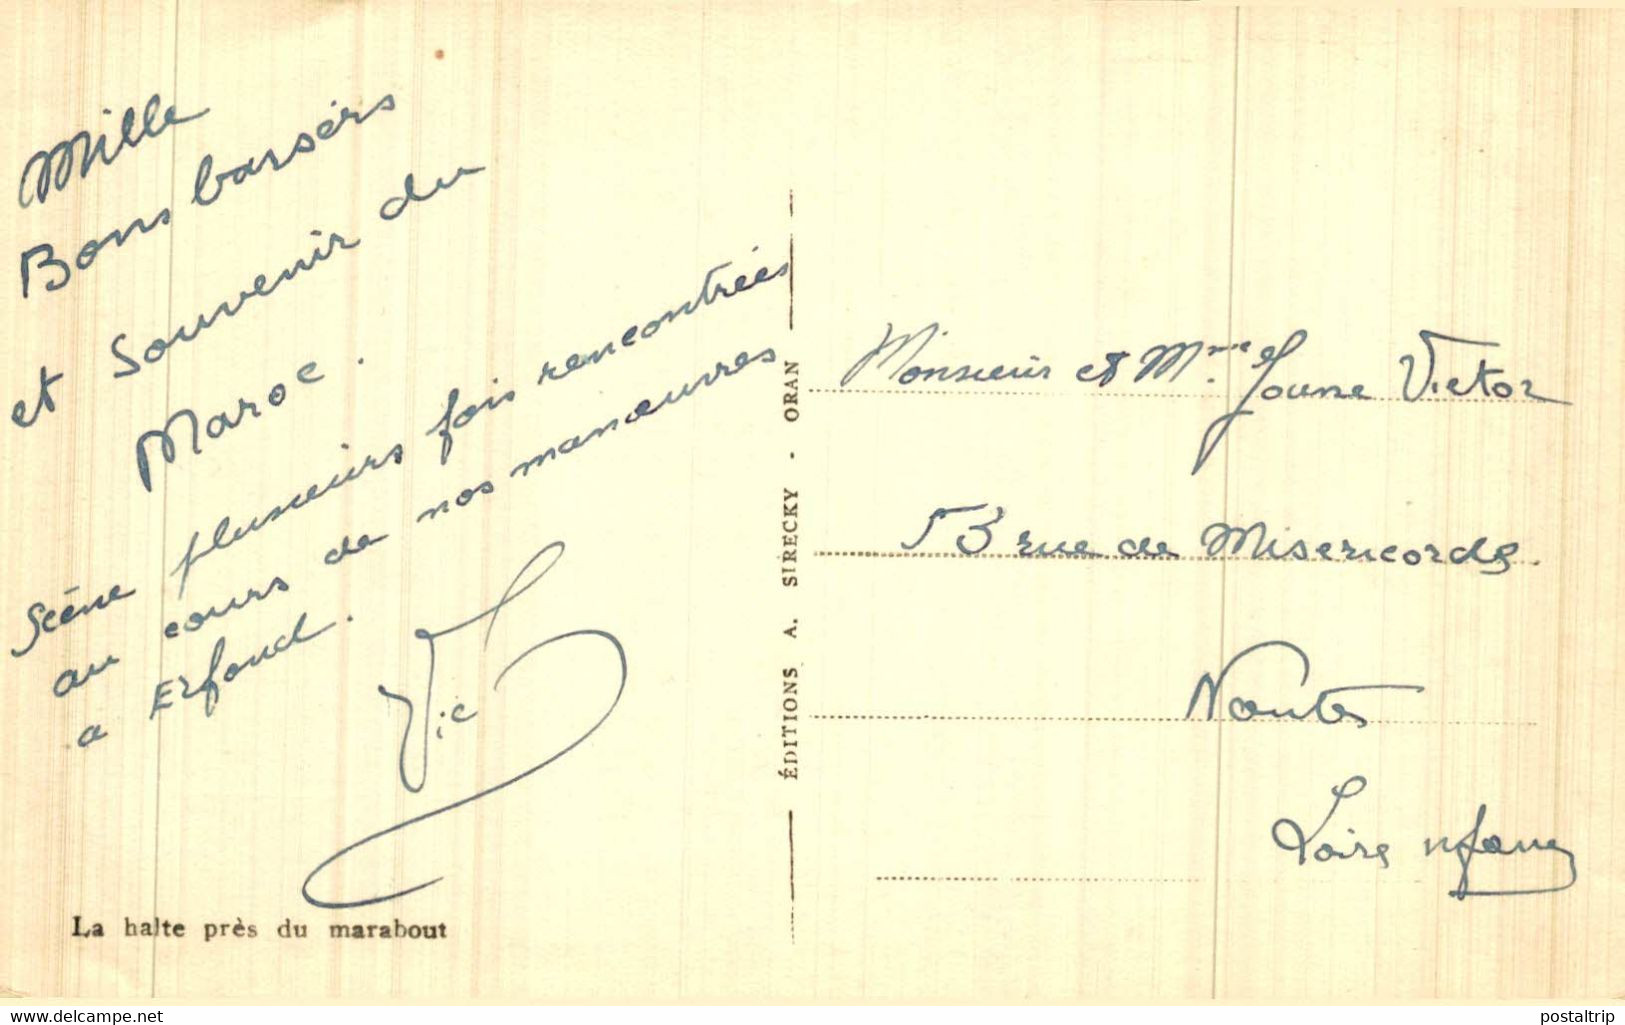 Mille
Bons barsérs
et Souvenir du
Maroc.
Scène plusieurs fois rencontrées
au cours de nos manœuvres
a Erfoud.
Vic
La halte près du marabout
ÉDITIONS A. SIRECKY - ORAN
Monsieur et Mme Joune Victor
53 rue de Misericorde.
Nantes
Loire
www.delcampe.net
postaltrip